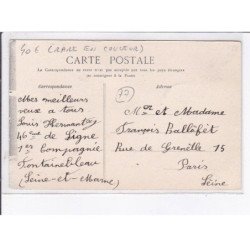 40€ (RARE EN COULEUR)
CARTE POSTALE
La Correspondance au recto n'est pas acceptée par tous les pays étrangers
se renseigner à la Poste
Correspondance
Adresse
77
Mes meilleurs
veux a tous
Louis
46ème de Ligne
1ère Compagnie
Fontainebleau
(Seine-et-Marne)
Mr et Madame
François Ballafet
Rue de Grenelle 15
Paris
Seine